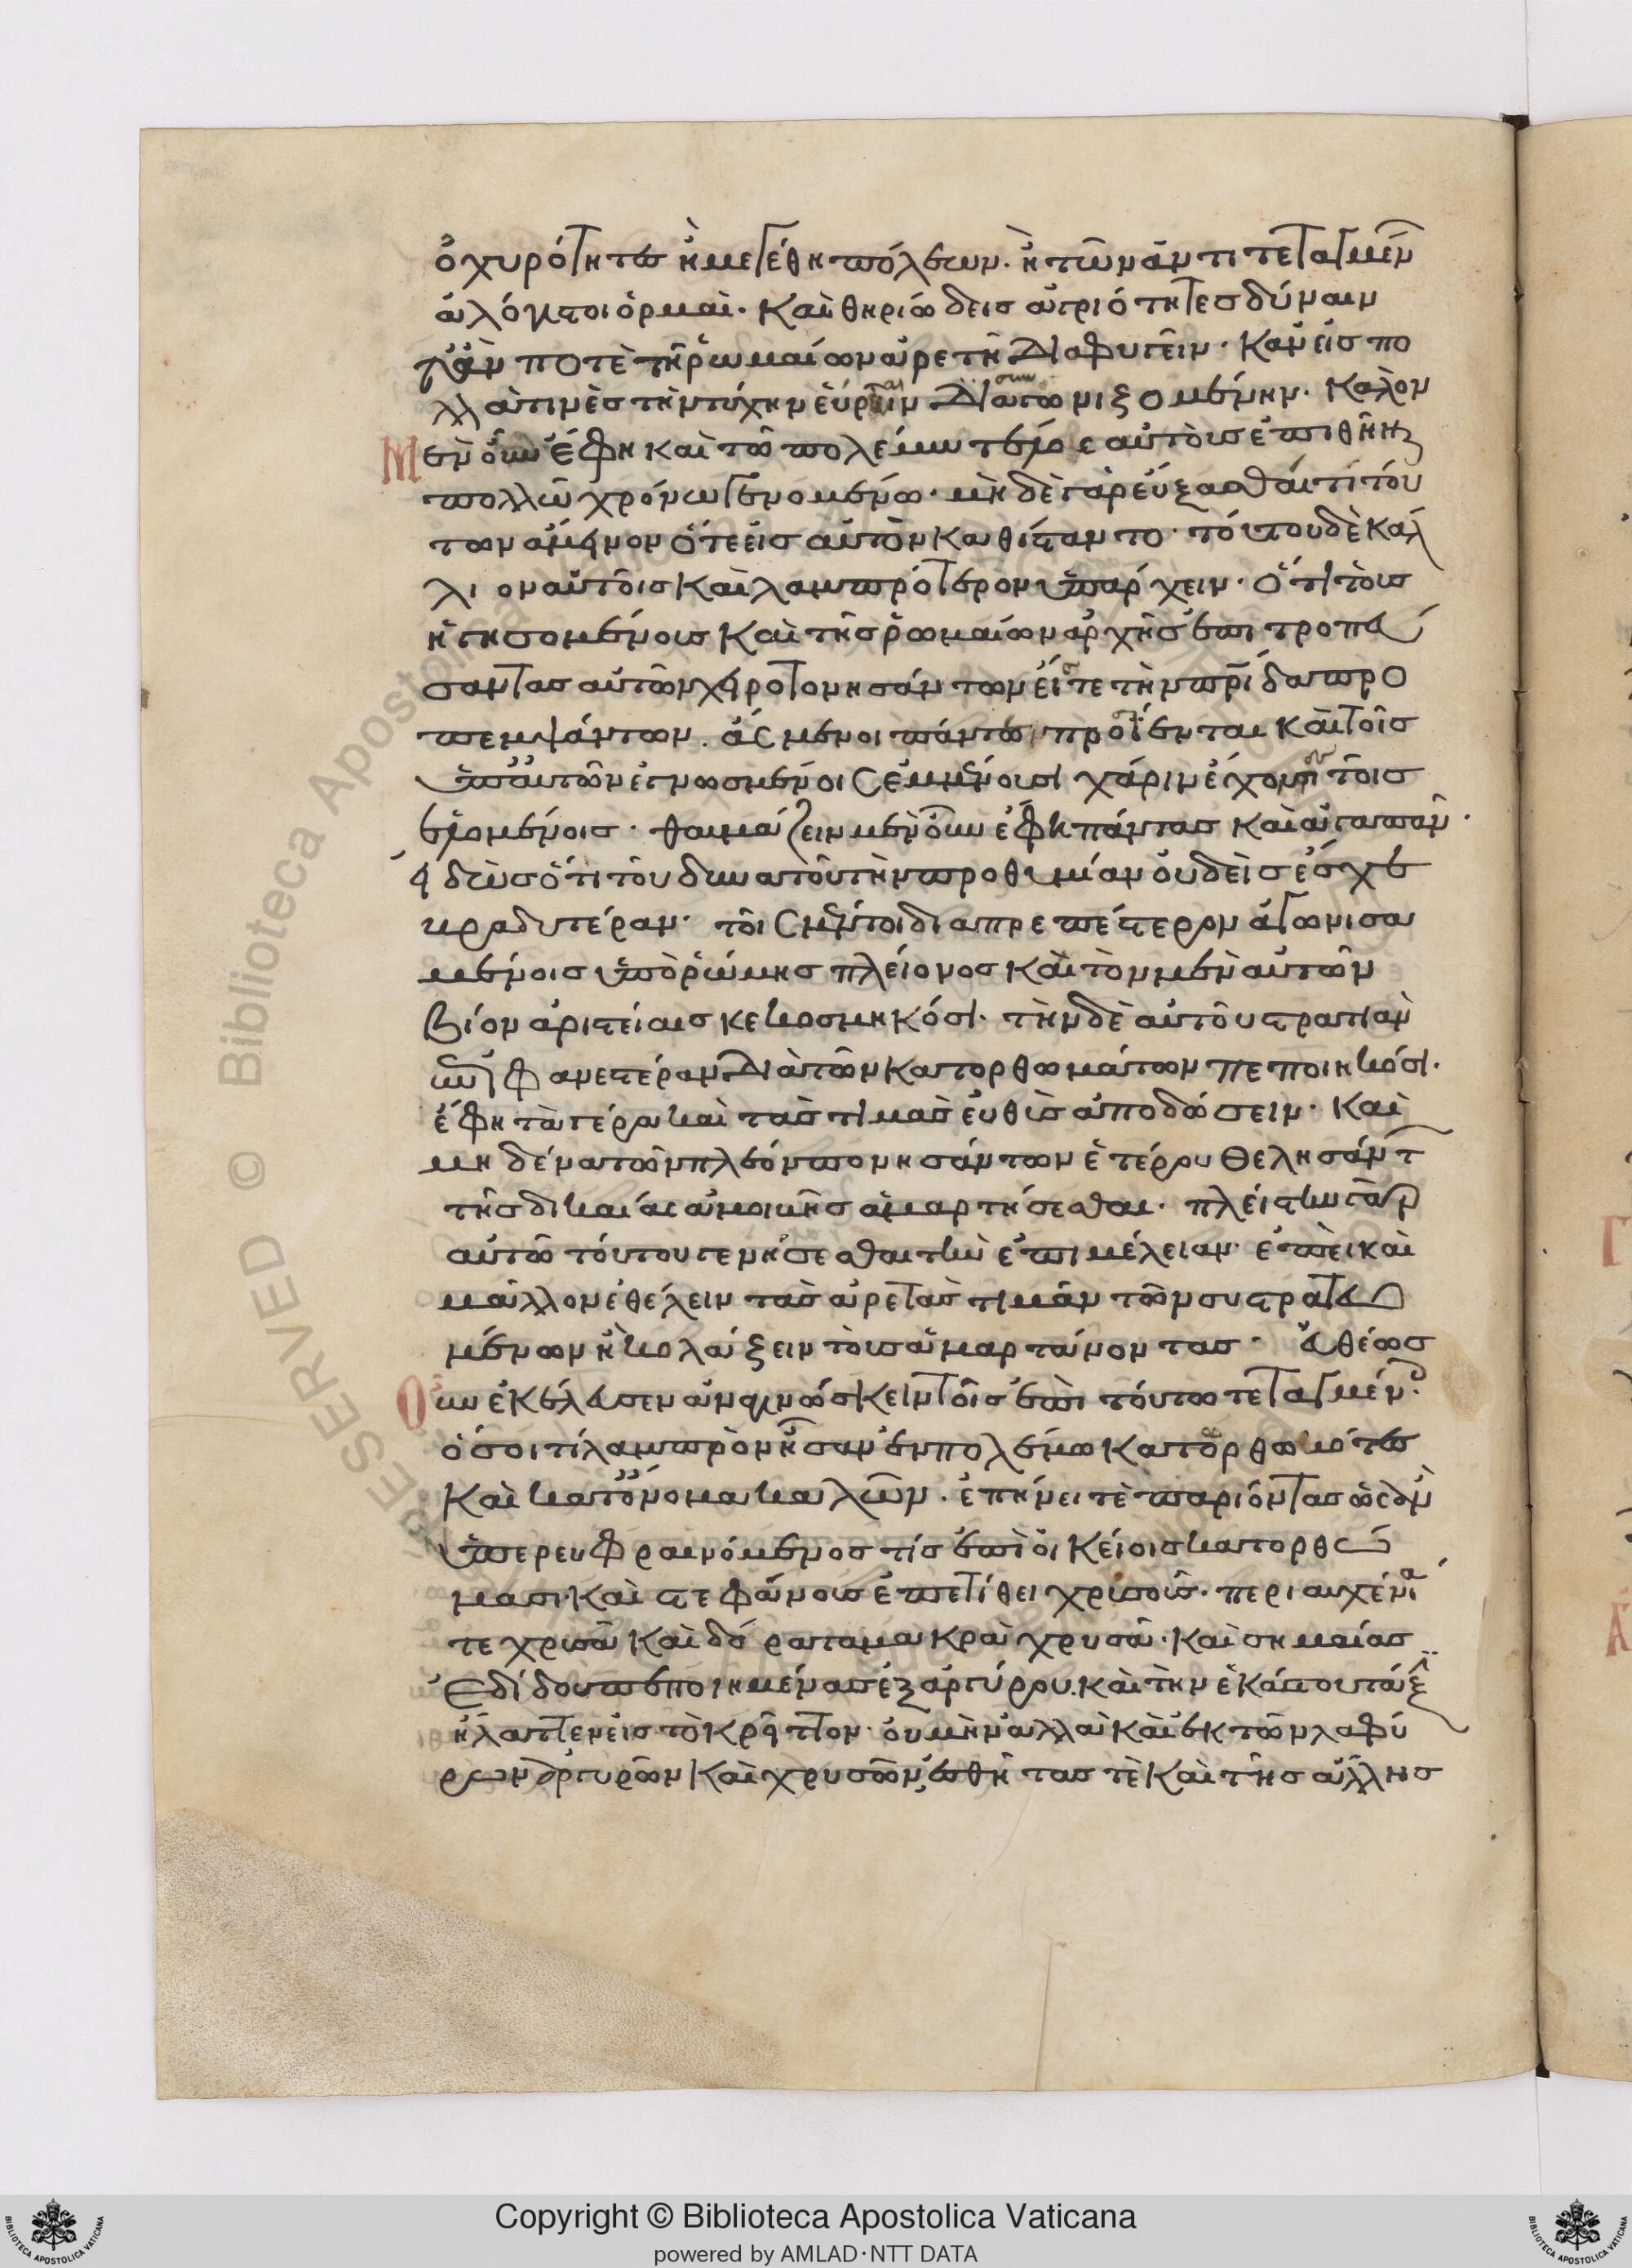 ὀχυρότητες ἢ μεγέθη πόλεων. ἢ τῶν ἀντιτεταγμέν
ἀλόγιστοι ὁρμαὶ. καὶ θηριώδεις ἀγριότητες δύναιν
τ' ἄν ποτὲ τὴν ῥωμαίων ἀρετὴν διαφυγεῖν. κἂν εἰς πο
λλὰ τινὲς τὴν τύχην εὕρωσιν συναγωνιζομένην. καλὸν
Μὲν οὖν ἔφη καὶ τῷ πολέμῳ τέλος αὐτοὺς ἐπιθεῖναι
πολλῷ χρόνῳ γενομένῳ. μηδὲ γὰρ εὔξασθαί τι τού
των ἄμεινον ὅτε εἰς αὐτὸν καθίσταντο. τούτου δὲ κάλ
λιον αὐτοῖς καὶ λαμπρότερον ὑπάρχειν. ὅτι τοὺς
ἡγησομένους καὶ τῆς ῥωμαίων ἀρχῆς ἐπιτροπεύ
σαντας αὐτῶν χειροτονησάντων εἴς τε τὴν πατρίδα προ
πεμψάντων. ἄσμενοι πάντες προΐενται καὶ τοῖς
ὑπ' αὐτῶν ἐγνωσμένοις ἐμμένουσι χάριν ἔχουσι τοῖς
ἑλομένοις. θαυμάζειν μὲν οὖν ἔφη πάντας καὶ ἀγαπᾶν.
εἰδὼς ὅτι τοῦ δυνατοῦ τὴν προθυμίαν οὐδεὶς ἔσχε
βραδυτέραν. τοῖς μέντοι διαπρεπέστερον ἀγωνισα
μένοις ὑπὸ ῥώμης πλείονος καὶ τὸν μὲν αὐτῶν
βίον ἀριστείαις κεκοσμηκόσι. τὴν δὲ αὐτοῦ στρατιὰν
εὐφανεστέραν διὰ τῶν κατορθωμάτων πεποιηκόσι.
ἔφη τὰ γέρα καὶ τὰς τιμὰς εὐθὺς ἀποδώσειν. καὶ
μηδένα τῶν πλέον πονησάντων ἑτέρου θελησάντ
τῆς δικαίας ἀμοιβῆς ἁμαρτήσεσθαι. πλείστην γὰρ
αὐτῷ τούτου γενήσεσθαι τὴν ἐπιμέλειαν. ἐπεὶ καὶ
μᾶλλον ἐθέλειν τὰς ἀρετὰς τιμᾶν τῶν συστρατευο
μένων ἢ κολάζειν τοὺς ἁμαρτάνοντας. εὐθέως
Οὖν ἐκέλευσεν ἀναγινώσκειν τοῖς ἐπὶ τούτῳ τεταγμένοις
ὅσοι τι λαμπρὸν ἦσαν ἐν πολέμῳ κατορθωκότες
καὶ κατ' ὄνομα καλῶν. ἐπῄνει τὲ παριόντας ὡς ἂν
ὑπερευφραινόμενος τίς ἐπ' οἰκείοις κατορθώ
μασι. καὶ στεφάνους ἐπετίθει χρυσοῦς. περιαυχένιά
τε χρυσᾶ καὶ δόρατα μακρὰ χρυσᾶ. καὶ σημαίας
ἐδίδου πεποιημένας ἐξ ἀργύρου. καὶ τὴν ἑκάστου τάξιν
ἤλαττεν εἰς τὸ κρεῖττον. οὐ μὴν ἀλλὰ καὶ ἐκ τῶν λαφύ
ρων ἀργυρῶν καὶ χρυσῶν ἐσθῆτας τὲ καὶ τῆς ἄλλης
Copyright © Biblioteca Apostolica Vaticana
powered by AMLAD·NTT DATA